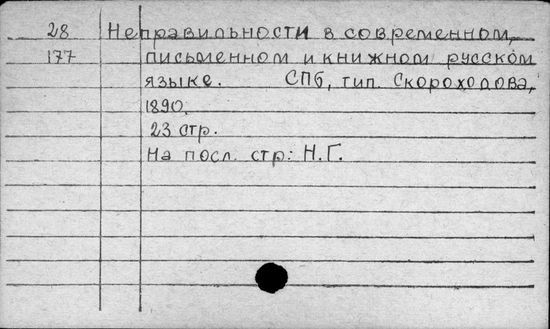 28 Неправильности в современном,
177 письменном и книжном русском
языке. СПб, тип. Скороходова,
1890.
23 стр.
На посл. стр: Н.Г.